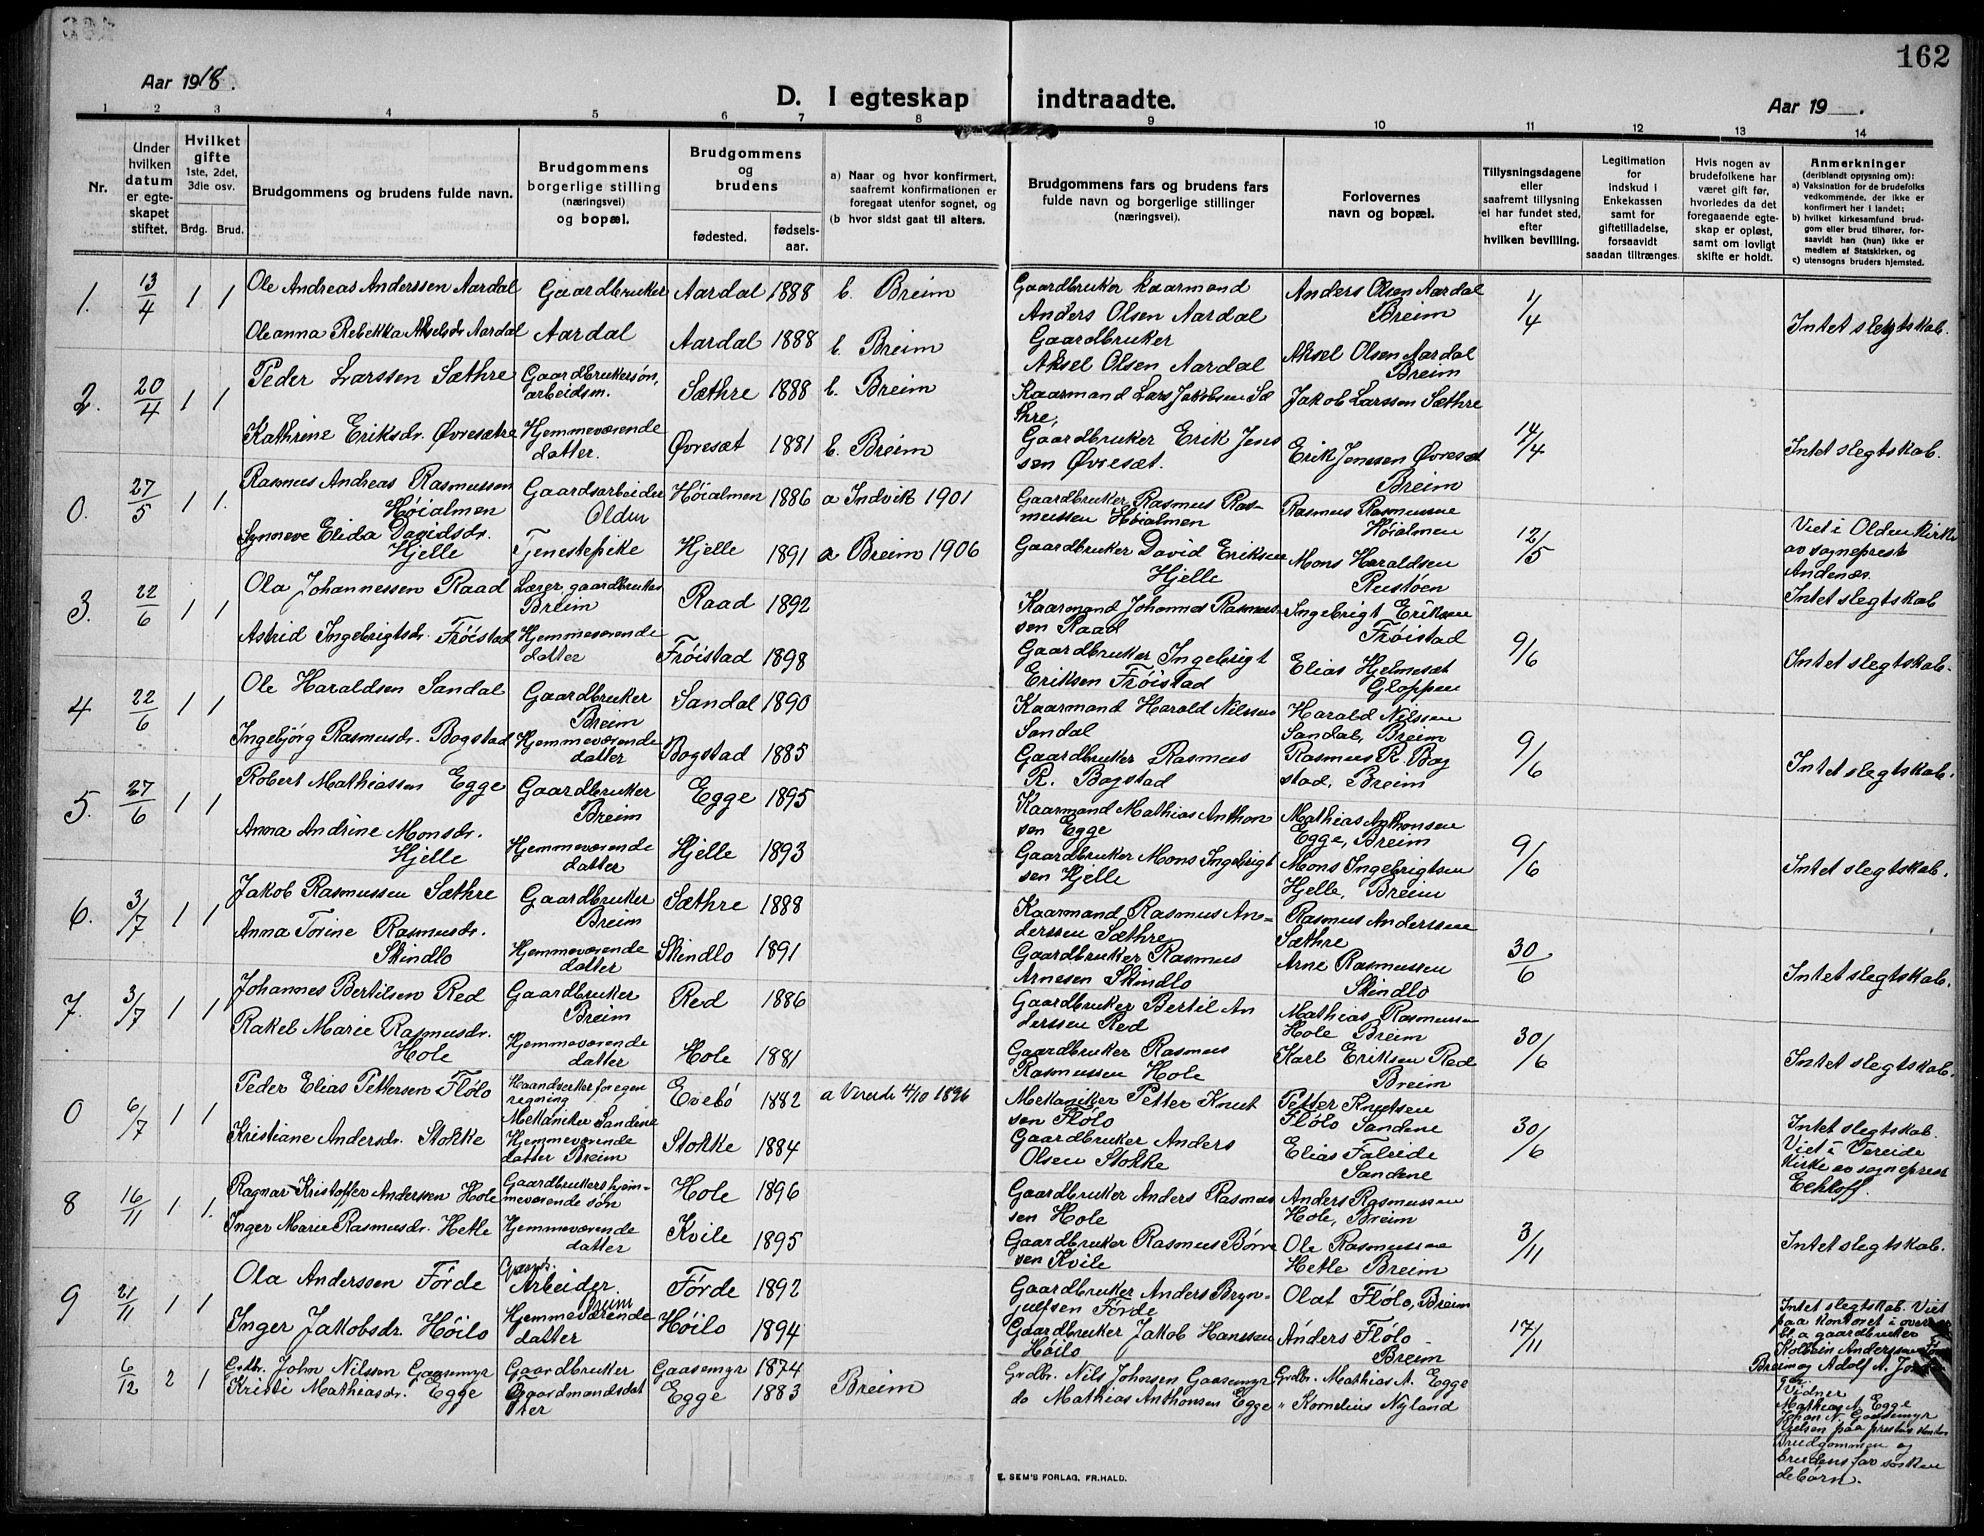 162
Aar 1918.
D. I egteskap indtraadte.
Aar 19
1 2 3 4 5 6 7 8 9 10 11 12 13 14
Nr.
Under hvilken datum er egteskapet stiftet.
Hvilket gifte 1ste, 2det, 3die osv.
Brdg. Brud.
Brudgommens og brudens fulde navn.
Brudgommens borgerlige stilling (næringsvei) og bopæl.
Brudgommens og brudens
fødested. fødselsaar.
a) Naar og hvor konfirmert, saafremt konfirmationen er foregaat utenfor sognet, og
(b hvor sidst gaat til alters.
Brudgommens fars og brudens fars fulde navn og borgerlige stillinger (næringsvei).
Forlovernes navn og bopæl.
Tillysningsdagene eller saafremt tillysning ei har fundet sted, efter hvilken bevilling.
Legitimation for indskud i Enkekassen samt for giftetilladelse, forsaavidt saadan tiltrænges.
Hvis nogen av brudefolkene har været gift før, hvorledes da det foregaaende egteskap er opløst, samt om lovligt skifte er holdt.
Anmerkninger (deriblandt opysning om):
a) Vaksination for de brudefolks vedkommende, der ikke er konfirmert her i landet;
b) hvilket kirkesamfund brudgom eller brud tilhører, forsaavidt han (hun) ikke er medlem af Statskirken, og
c) utensogns bruders hjemsted.
1. 13/4 1 1 Ole Andreas Anderssen Aardal Gaardbruker Aardal 1888 b. Breim Gaardbruker Kaarmand Anders Olsen Aardal Anders Olsen Aardal Breim 1/4
Oleanna Rebekka Akselsdr Aardal Aardal Aardal 1888 b. Breim Gaardbruker Aksel Olsen Aardal Aksel Olsen Aardal Breim Intet slegtskab.
2. 20/4 1 1 Peder Larssen Sæthre Gaardbrukersøn, arbeidsm. Sæthre 1888 b. Breim Kaarmand Lars Jakobsen Sæthre, Jakob Larssen Sæthre 14/4
Kathrine Eriksdr. Øvresætre Hjemmeværende datter. Øvresæt 1881 b. Breim Gaardbruker Erik Jenssen Øvresæt. Erik Jenssen Øvresæt Breim Intet slegtskab.
0. 27/5 1 1. Rasmus Andreas Rasmussen Høialmen Gaardsarbeider Olden Høialmen 1886 a Indvik 1901 Gaardbruker Rasmus Rasmussen Høialmen Rasmus Rasmussen Høialmen 12/5
Synneve Elida Davidsdr. Hjelle Tjenestepike Hjelle 1891 a Breim 1906 Gaardbruker David Eriksen Hjelle Mons Haraldsen Rustøen Viet i Olden kirke av sogneprest Andenæs. Intet slegtskab
3. 22/6 1 1 Ola Johannessen Raad Lærer, gaardbruker Breim Raad 1892 Kaarmand Johannes Rasmussen Raad Ingebrigt Eriksen Frøistad 9/6
Astrid Ingebrigtsdr. Frøistad Hjemmeværende datter Frøistad 1898 Gaardbruker Ingebrigt Eriksen Frøistad Elias Hjelmesæt Gloppen Intet slegtskab.
4 22/6 1 1 Ole Haraldsen Sandal Gaardbruker Breim Sandal 1890 Kaarmand Harald Nilssen Sandal Harald Nilssen Sandal, Breim 9/6
Ingebjørg Rasmusdr. Bogstad Hjemmeværende datter Bogstad 1885 Gaardbruker Rasmus R. Bogstad Rasmus R. Bogstad, Breim Intet slegtskab.
5. 27/6 1 1 Robert Mathiassen Egge Gaardbruker Breim Egge 1895 Kaarmand Mathias Anthonsen Egge Mathias Anthonsen Egge, Breim 9/6
Anna Andrine Monsdr. Hjelle Hjemmeværende datter Hjelle 1893 Gaardbruker Mons Ingebrigtsen Hjelle Mons Ingebrigtsen Hjelle, Breim Intet slegtskab.
6. 3/7 1 1 Jakob Rasmussen Sæthre Gaardbruker Breim Sæthre 1888 Kaarmand Rasmus Anderssen Sæthre Rasmus Anderssen Sæthre 30/6
Anna Torine Rasmusdr. Skindlo Hjemmeværende datter Skindlo 1891 Gaardbruker Rasmus Arnesen Skindlo Arne Rasmussen Skindlo Intet slegtskab.
7. 3/7 1 1 Johannes Bertilsen Red Gaardbruker Breim Red 1886 Gaardbruker Bertil Anderssen Red Mathias Rasmussen Hole Breim 30/6
Rakel Marie Rasmusdr. Hole Hjemmeværende datter Hole 1881 Gaardbruker Rasmus Rasmussen Hole Karl Eriksen Red Breim Intet slegtskab.
0 6/7 1 1 Peder Elias Pettersen Flølo Haandverker for egen regning Mekaniker Sandene Evebø 1882 a Vereide 4/10 1896 Mekaniker Petter Knutsen Flølo Petter Knutsen Flølo Sandene 30/6
Kristiane Andersdr. Stokke Hjemmeværende datter Breim Stokke 1884 Gaardbruker Anders Olsen Stokke Elias Faleide Sandene Intet slegtskab. Viet i Vereide kirke av sogneprest Eckhoff.
8 16/11 1 1. Ragnar Kristoffer Andersen Hole Gaardbrukers hjemmeværende søn Hole 1896 Gaardbruker Anders Rasmussen Hole Anders Rasmussen Hole, Breim 3/11
Inger Marie Rasmusdr. Hetle Hjemmeværende datter Kvile 1895 Gaardbruker Rasmus Børresen Kvile Ole Rasmussen Hetle Breim Intet slegtskab.
9 21/11 1 1 Ola Anderssen Førde Gaards. Arbeider Breim Førde 1892 Gaardbruker Anders Brynjulfsen Førde Olat Flølo, Breim 17/11
Inger Jakobsdr. Høilo Hjemmeværende datter Høilo 1894 Gaardbruker Jakob Hanssen Høilo Anders Flølo Breim Intet slegtskab. Viet paa kontoret i overvær bl. a gaardbruker Kolbein Anderssen Breim og Adolf A.
6/12 2 1 Grdbr. John Nilsen Gaasemyr Gaardbruker Gaasemyr 1874 Grdbr. Nils Johnsen Gaasemyr Grdbr. Mathias A. Egge
Kristi Mathiasdr. Egge Gaardmandsdatter Egge 1883 Breim do Mathias Anthonsen Egge " Kornelius Nyland
Vidner Mathias A Egge Johan N. Gaasemyr Vielsen paa prestens kontor Brudgommen og brudens far søskendebørn.
E. SEM'S FORLAG, FR.HALD.